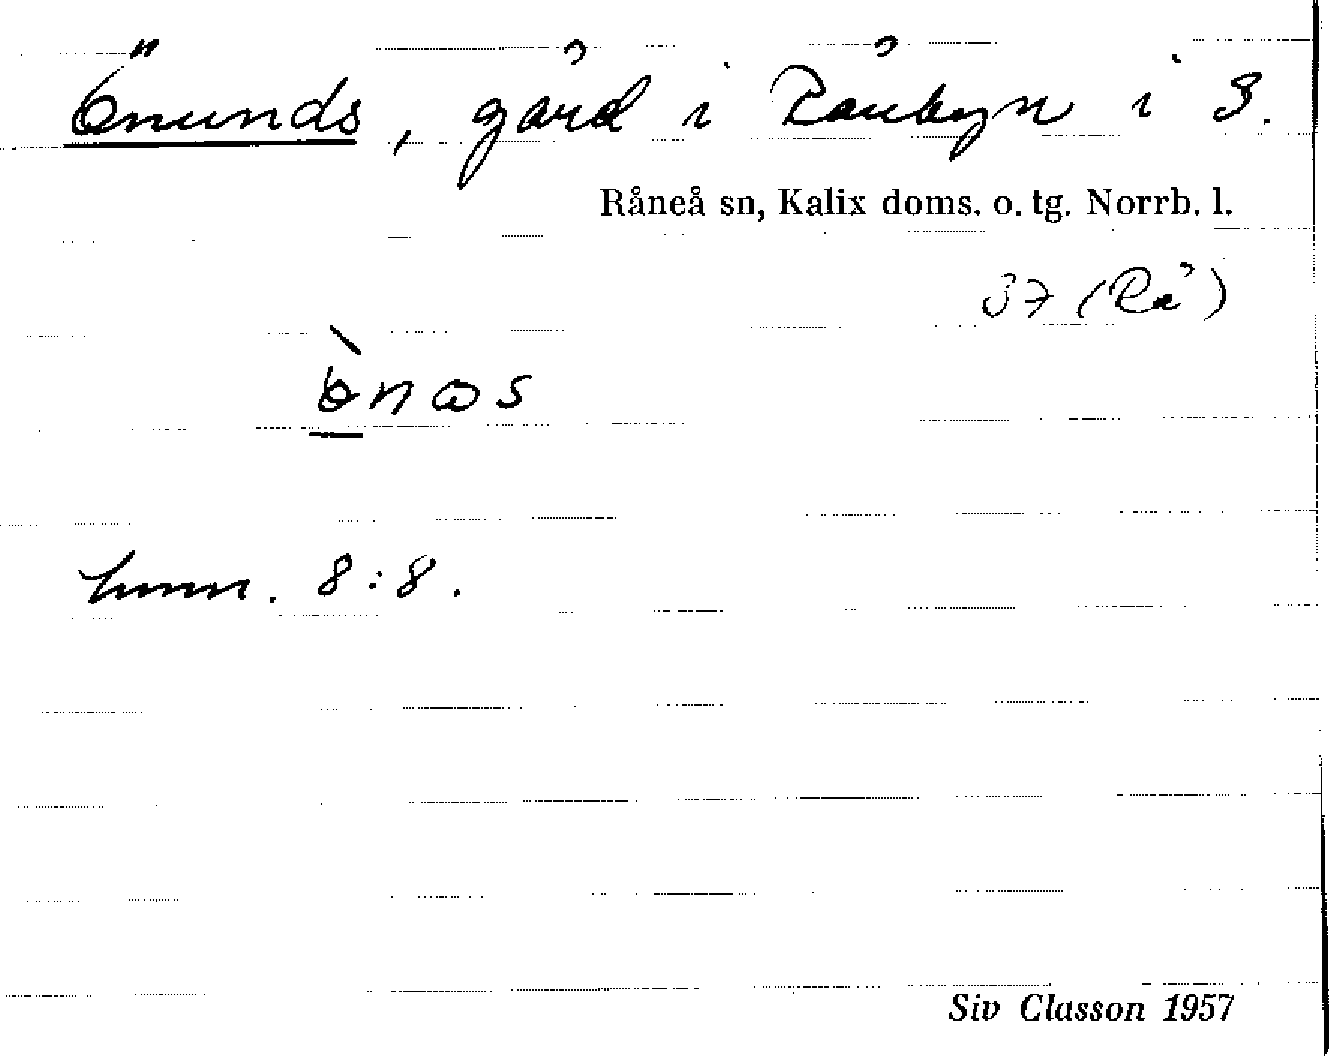 Önunds, gård i Rånbyn i S.
Råneå sn, Kalix doms. o. tg. Norrb. l.
37 (Rå)
hmn. 8:8.
Siv Classon 1957